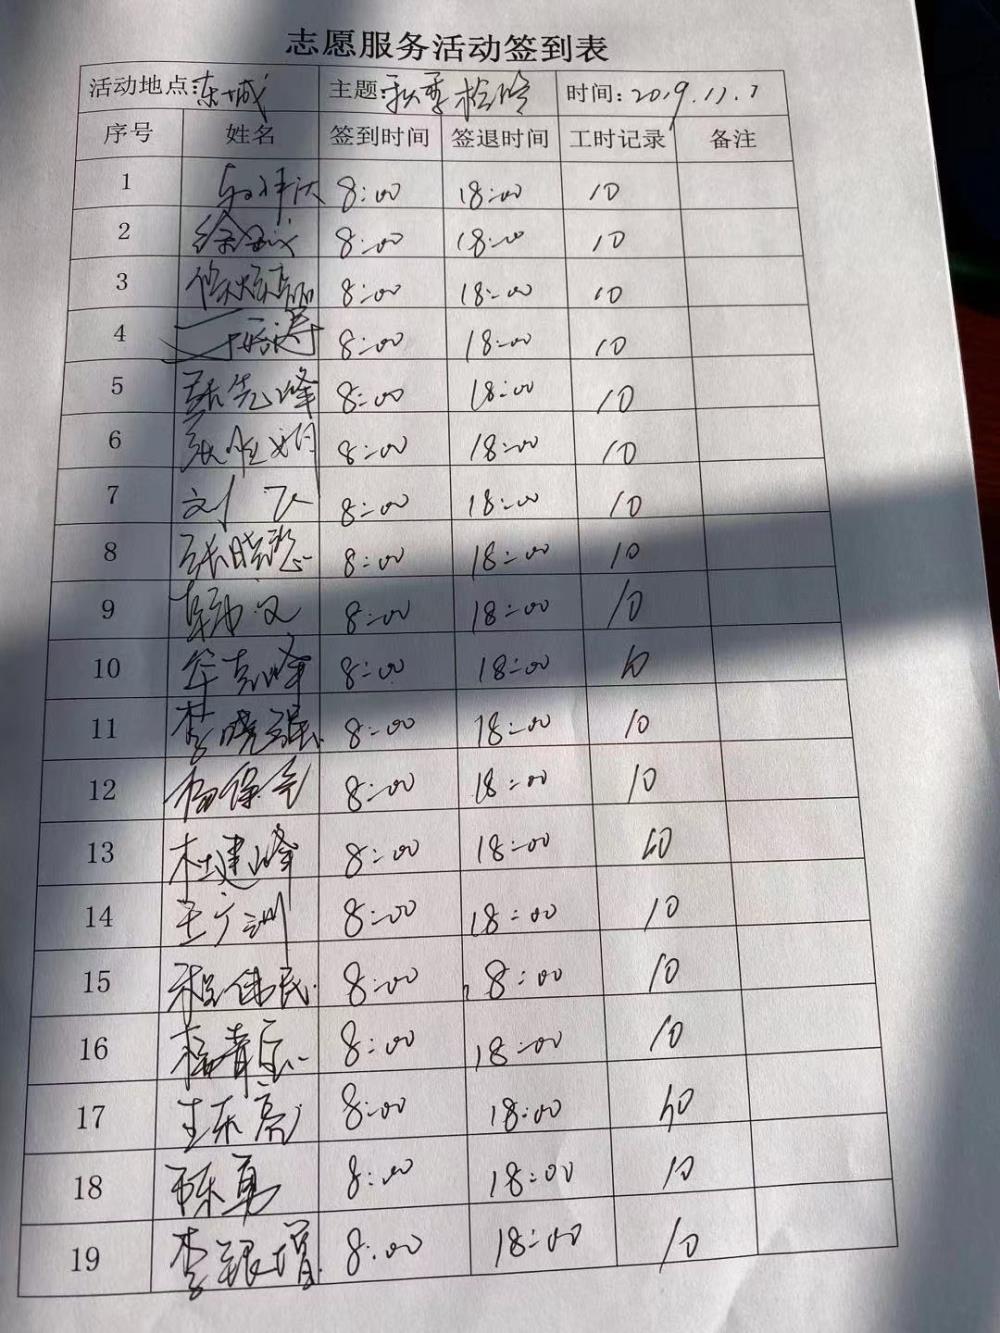 志愿服务活动签到表
活动地点:东城 主题:秋季检修 时间:2019.11.7
序号 姓名 签到时间 签退时间 工时记录 备注
1 8:00 18:00 10
2 8:00 18:00 10
3 8:00 18:00 10
4 8:00 18:00 10
5 张先峰 8:00 18:00 10
6 8:00 18:00 10
7 刘飞 8:00 18:00 10
8 8:00 18:00 10
9 8:00 18:00 10
10 华克峰 8:00 18:00 10
11 李晓强 8:00 18:00 10
12 8:00 18:00 10
13 杜建峰 8:00 18:00 10
14 王广洲 8:00 18:00 10
15 程伟民 8:00 18:00 10
16 8:00 18:00 10
17 王东亮 8:00 18:00 10
18 陈勇 8:00 18:00 10
19 李银增 8:00 18:00 10